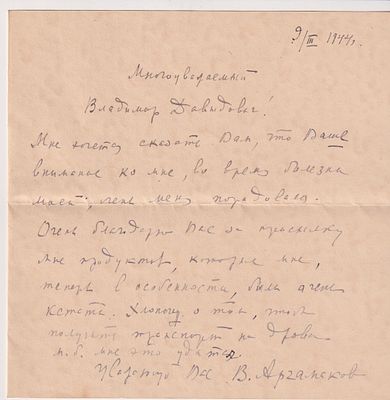 9/III 1944г.
Многоуважаемый
Владимир Давыдович!
Мне хочется сказать Вам, что Ваше
внимание ко мне, во время болезни
моей, очень меня порадовало.
Очень благодарю Вас за присылку
мне продуктов, которые мне,
теперь в особенности, были очень
кстати. Хлопочу о том, чтоб
получить транспорт на дрова
м.б. мне это удастся
Уважающий Вас В. Аргамаков